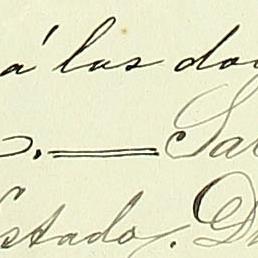 á las do
Sa
Estado. D